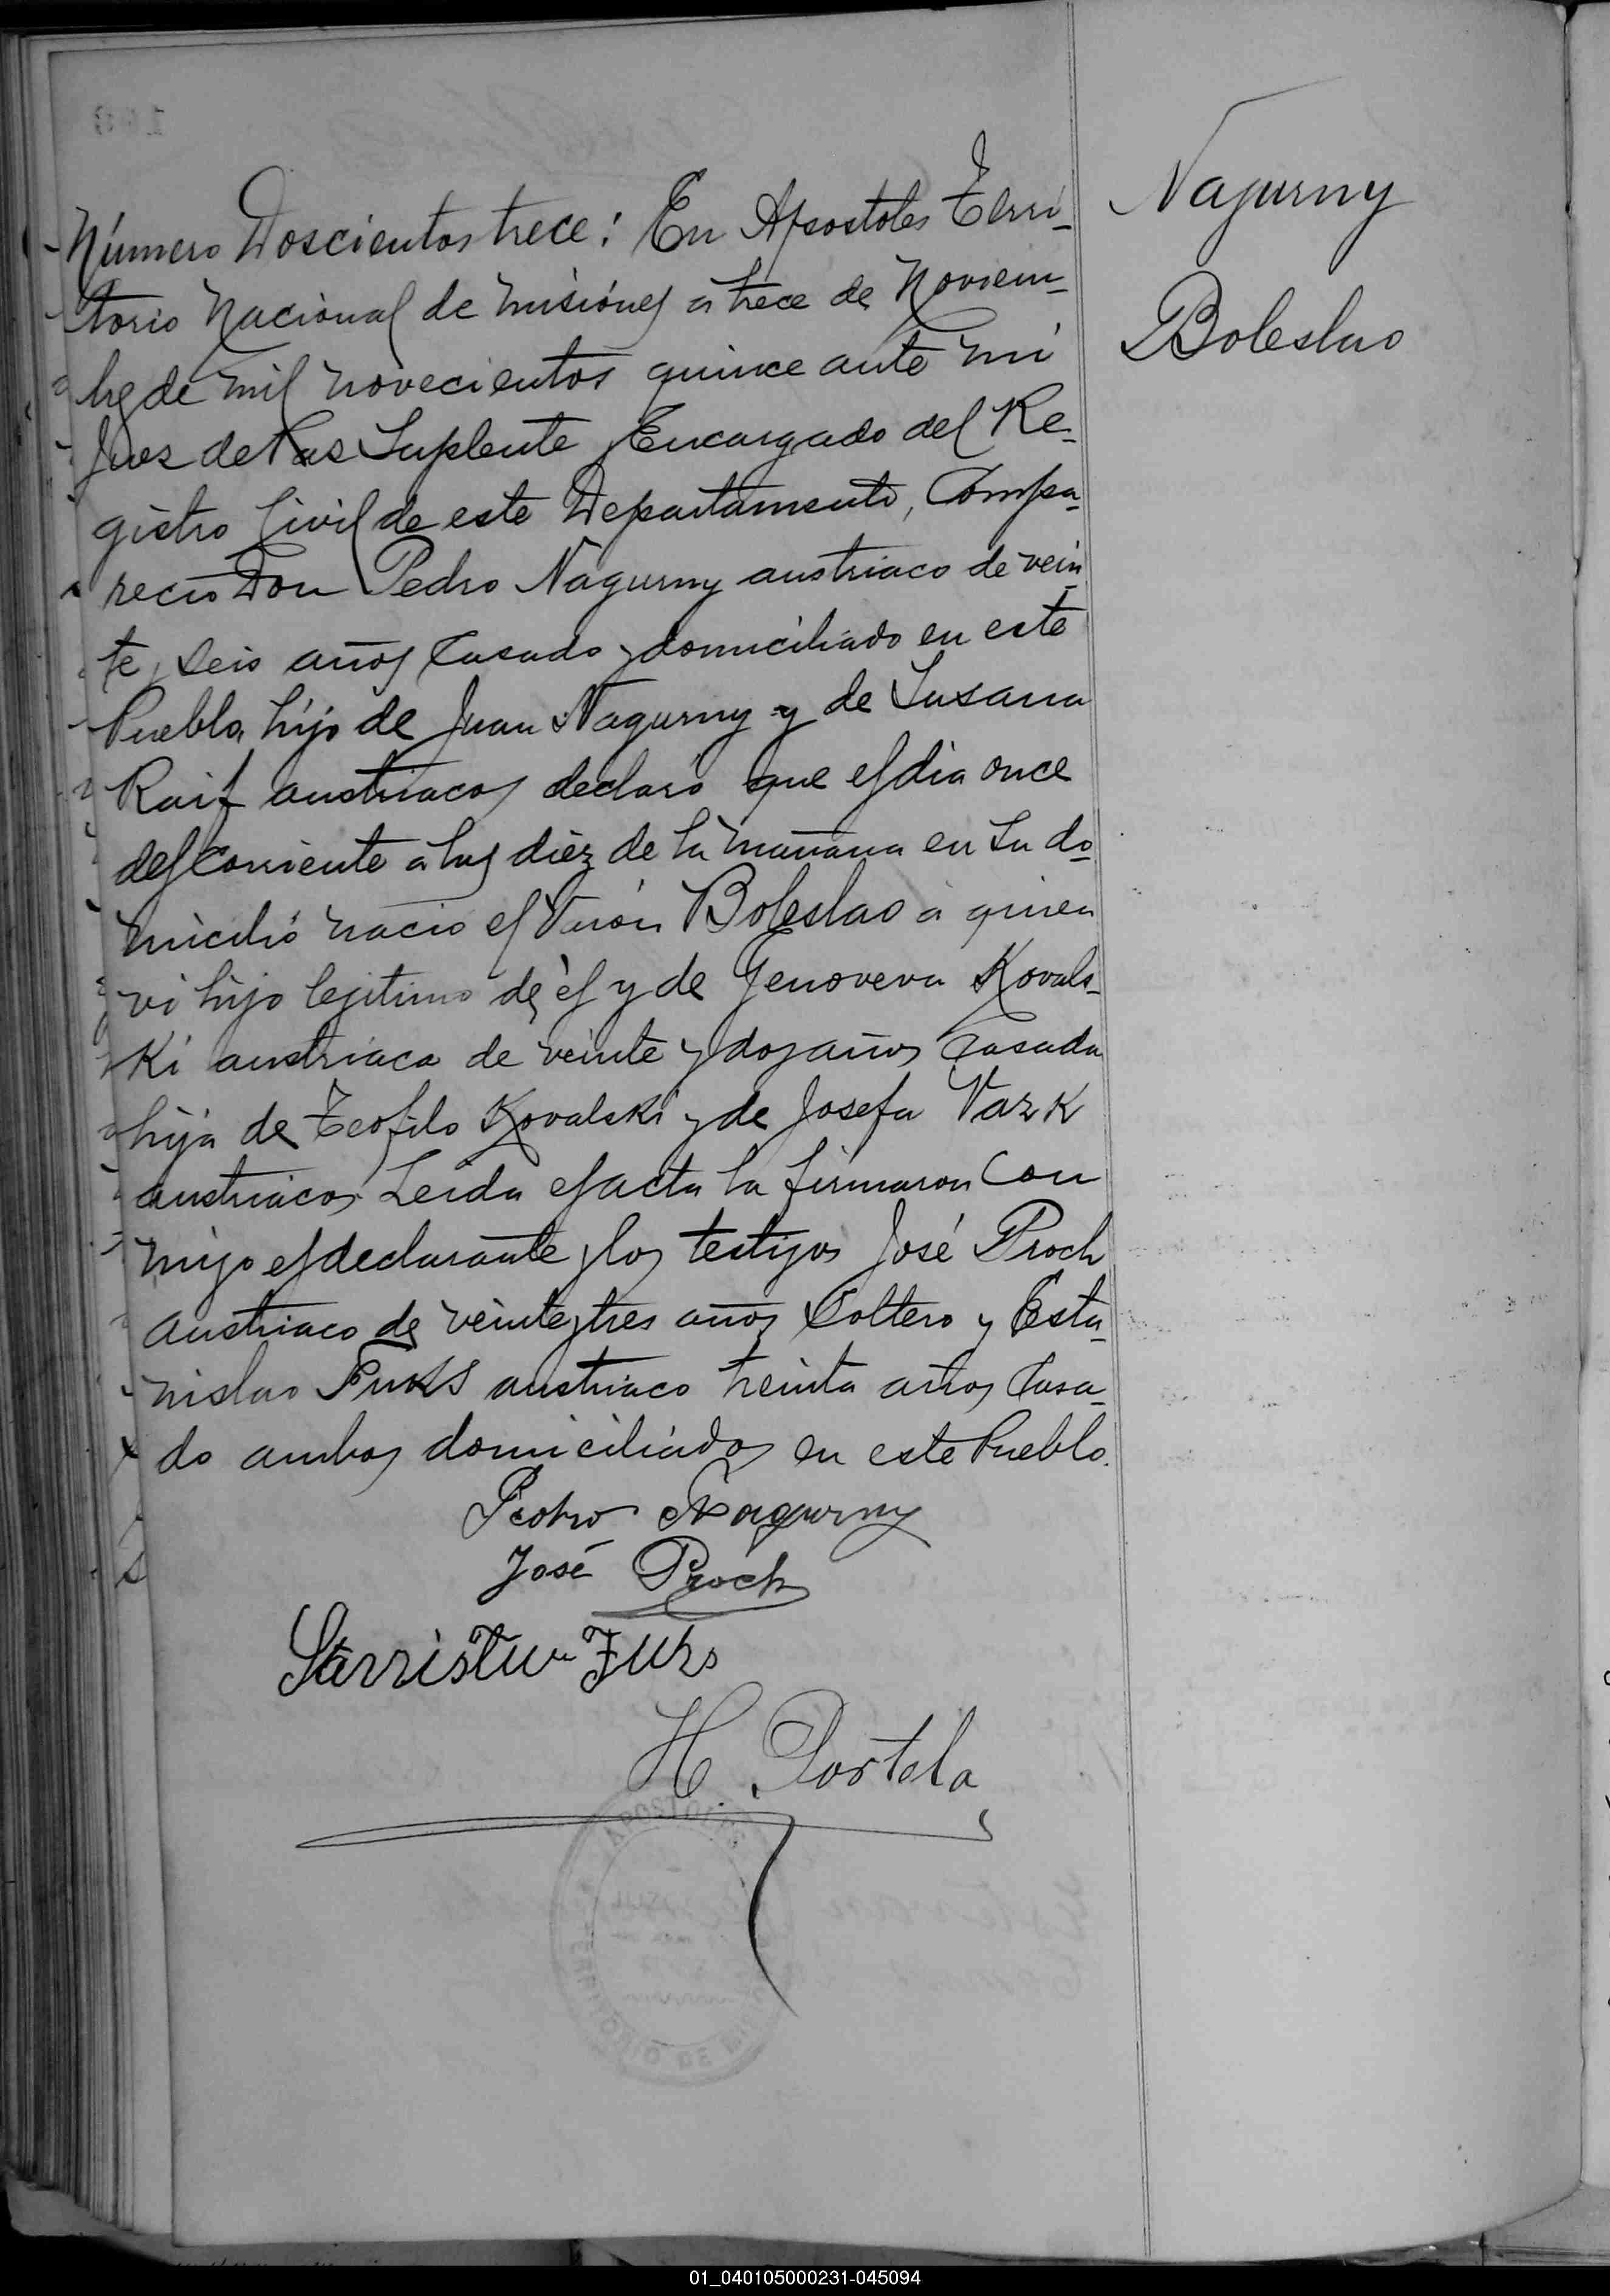 Nagurny
Boleslao
Número Doscientos trece: En Apostoles Terri-
torio Nacional de Misiónes á trece de Noviem-
bre de mil novecientos quince ante mi
Juez de Pas Suplente Encargado del Re-
gistro Civil de este Departamento, Compa-
recio Don Pedro Nagurny austriaco de vein-
te y seis años Casado y domiciliado en este
Pueblo, hijo de Juan Nagurny y de Susana
Raif austriacos declaró que el dia once
del Corriente á las diéz de la mañana en su do-
micilió nació el Varón Boleslao á quien
vi hijo lejitimo de él y de Genoveva Kovals-
ki austriaca de veinte y dos años Casada
hija de Teofilo Kovalski y de Josefa Vazk
austriacos Leida el acta la firmaron Con
migo el declarante y los testigos José Proch
austriaco de veinte y tres años Soltero y Esta-
nislao Fuks austriaco treinta años Casa-
do ambos domiciliados en este Pueblo.
Pedro Nagurny
José Proch
Fuks
H. Portela
TERRITORIO DE
01_040105000231-045094